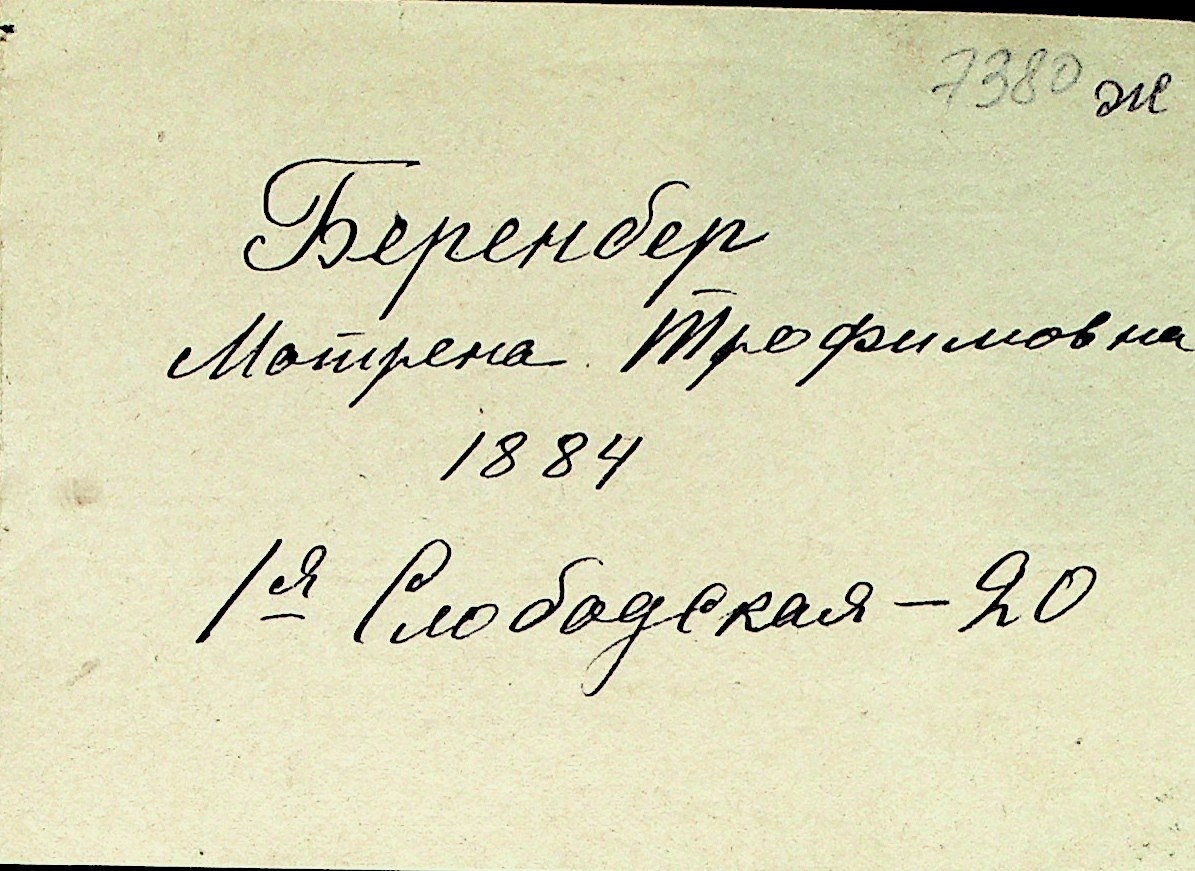 7380 ж
Беренбер
Матрена Трофимовна
1884
1я Слободская – 20